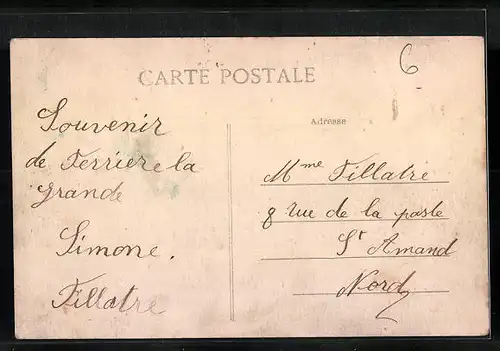 6
CARTE POSTALE
Adresse
Souvenir
de Ferriere la
grande
Simone.
Fillatre
Mme Fillatre
8 rue de la poste
St Amand
Nord